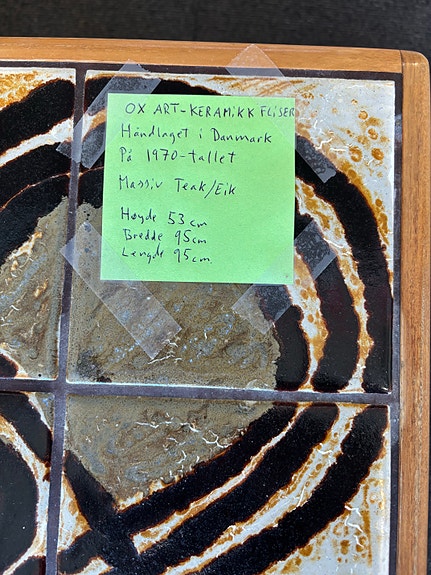 OX ART-KERAMIKK FLISER
Håndlaget i Danmark
På 1970-tallet
Massiv Teak/Eik
Høyde 53 cm
Bredde 95cm
Lengde 95cm.